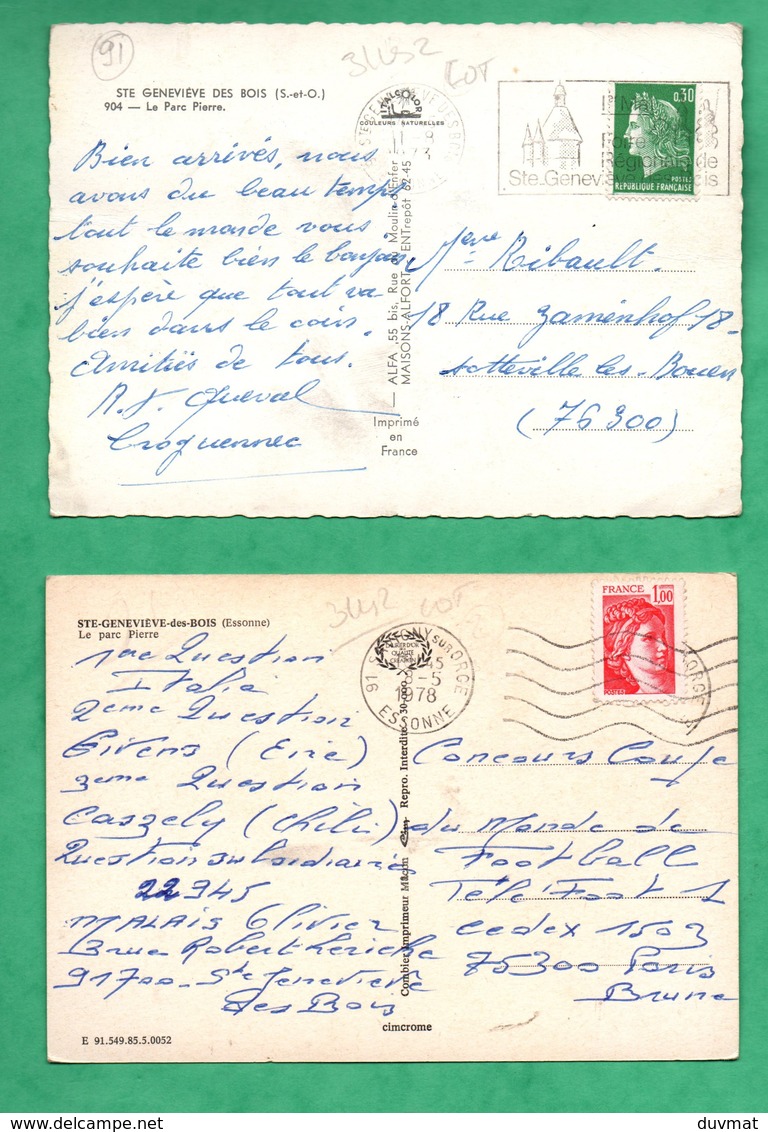 91
STE GENEVIÈVE DES BOIS (S.-et-O.)
904 — Le Parc Pierre.
ITALCOLOR
COULEURS NATURELLES
Foire
Régionale de
Ste-Geneviève des Bois
0,30
POSTES
REPUBLIQUE FRANÇAISE
Bien arrivés, nous
avons du beau temps
tout le monde vous
souhaite bien le bonjour,
j'espère que tout va
bien dans le coin.
Amitiés de tous.
R. J. Queval
Croquennec
— ALFA, 55 bis, Rue du Moulin d'Enfer
MAISONS-ALFORT — ENTrepôt 62-45
Imprimé
en
France
Mme Ribault.
18 Rue Zamenhof-18-
Sotteville les Rouen
(76300)
STE-GENEVIÈVE-des-BOIS (Essonne)
Le parc Pierre
91 SAVIGNY SUR ORGE
-5
1978
ESSONNE
FRANCE 1,00
POSTES
1ere Question
Italia
2eme Question
Givens (Eire)
3eme Question
Caszely (Chili)
Question subsidiaire
22945
MALAIS Olivier
3 rue Robert Leriche
91700 - Ste Genevieve
des Bois
Combier imprimeur Mâcon Cim Repro. Interdite
Concours Coupe
du Monde de
Football
Télé Foot 1
Cedex 1503
75300 Paris
Brune
cimcrome
E 91.549.85.5.0052
www.delcampe.net
duvmat